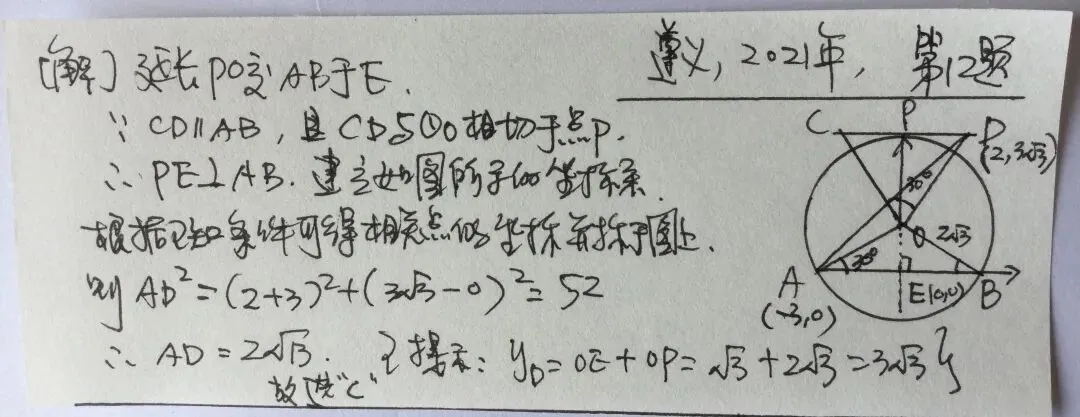 遵义, 2021年, 第12题
[解] 延长PO交AB于E.
∵ CD∥AB, 且CD与⊙O相切于点P.
∴ PE⊥AB. 建立如图所示的坐标系.
根据已知条件可得相关点的坐标并标于图上.
则 AD²=(2+3)²+(3√3-0)²=52
∴ AD=2√13. {提示: y_D=OE+OP=√3+2√3=3√3}
故选"C"
C P D
(2,3√3)
30°
O 2√3
30°
A E(0,0) B
(-3,0)